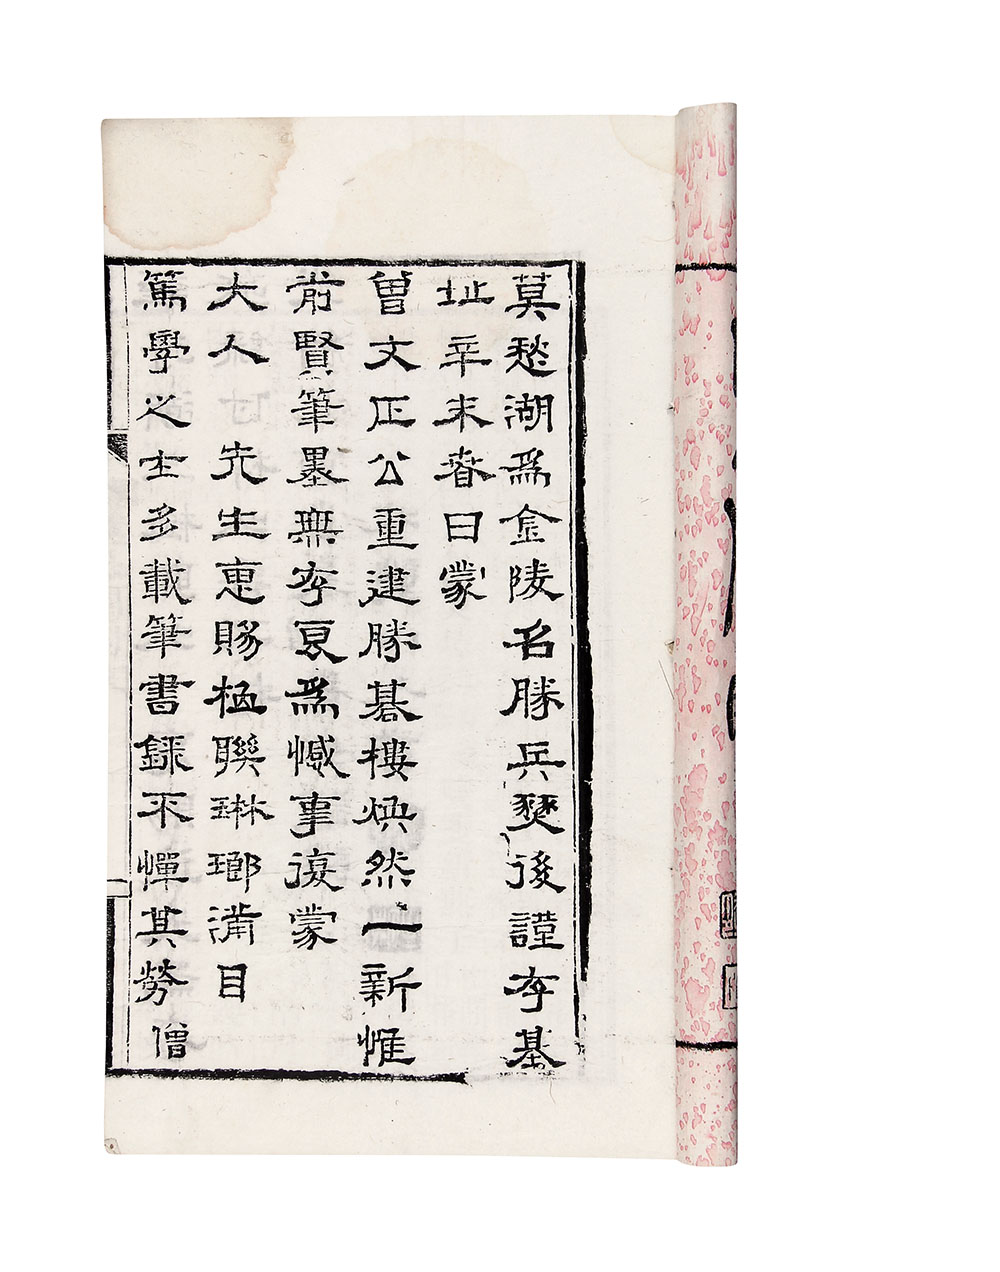 莫愁湖爲金陵名勝兵燹後謹存基
址辛未春日蒙
曾文正公重建勝棊樓煥然一新惟
前賢筆墨無存最爲憾事復蒙
大人先生惠賜楹聯琳瑯滿目
篤學之士多載筆書錄不憚其勞僧